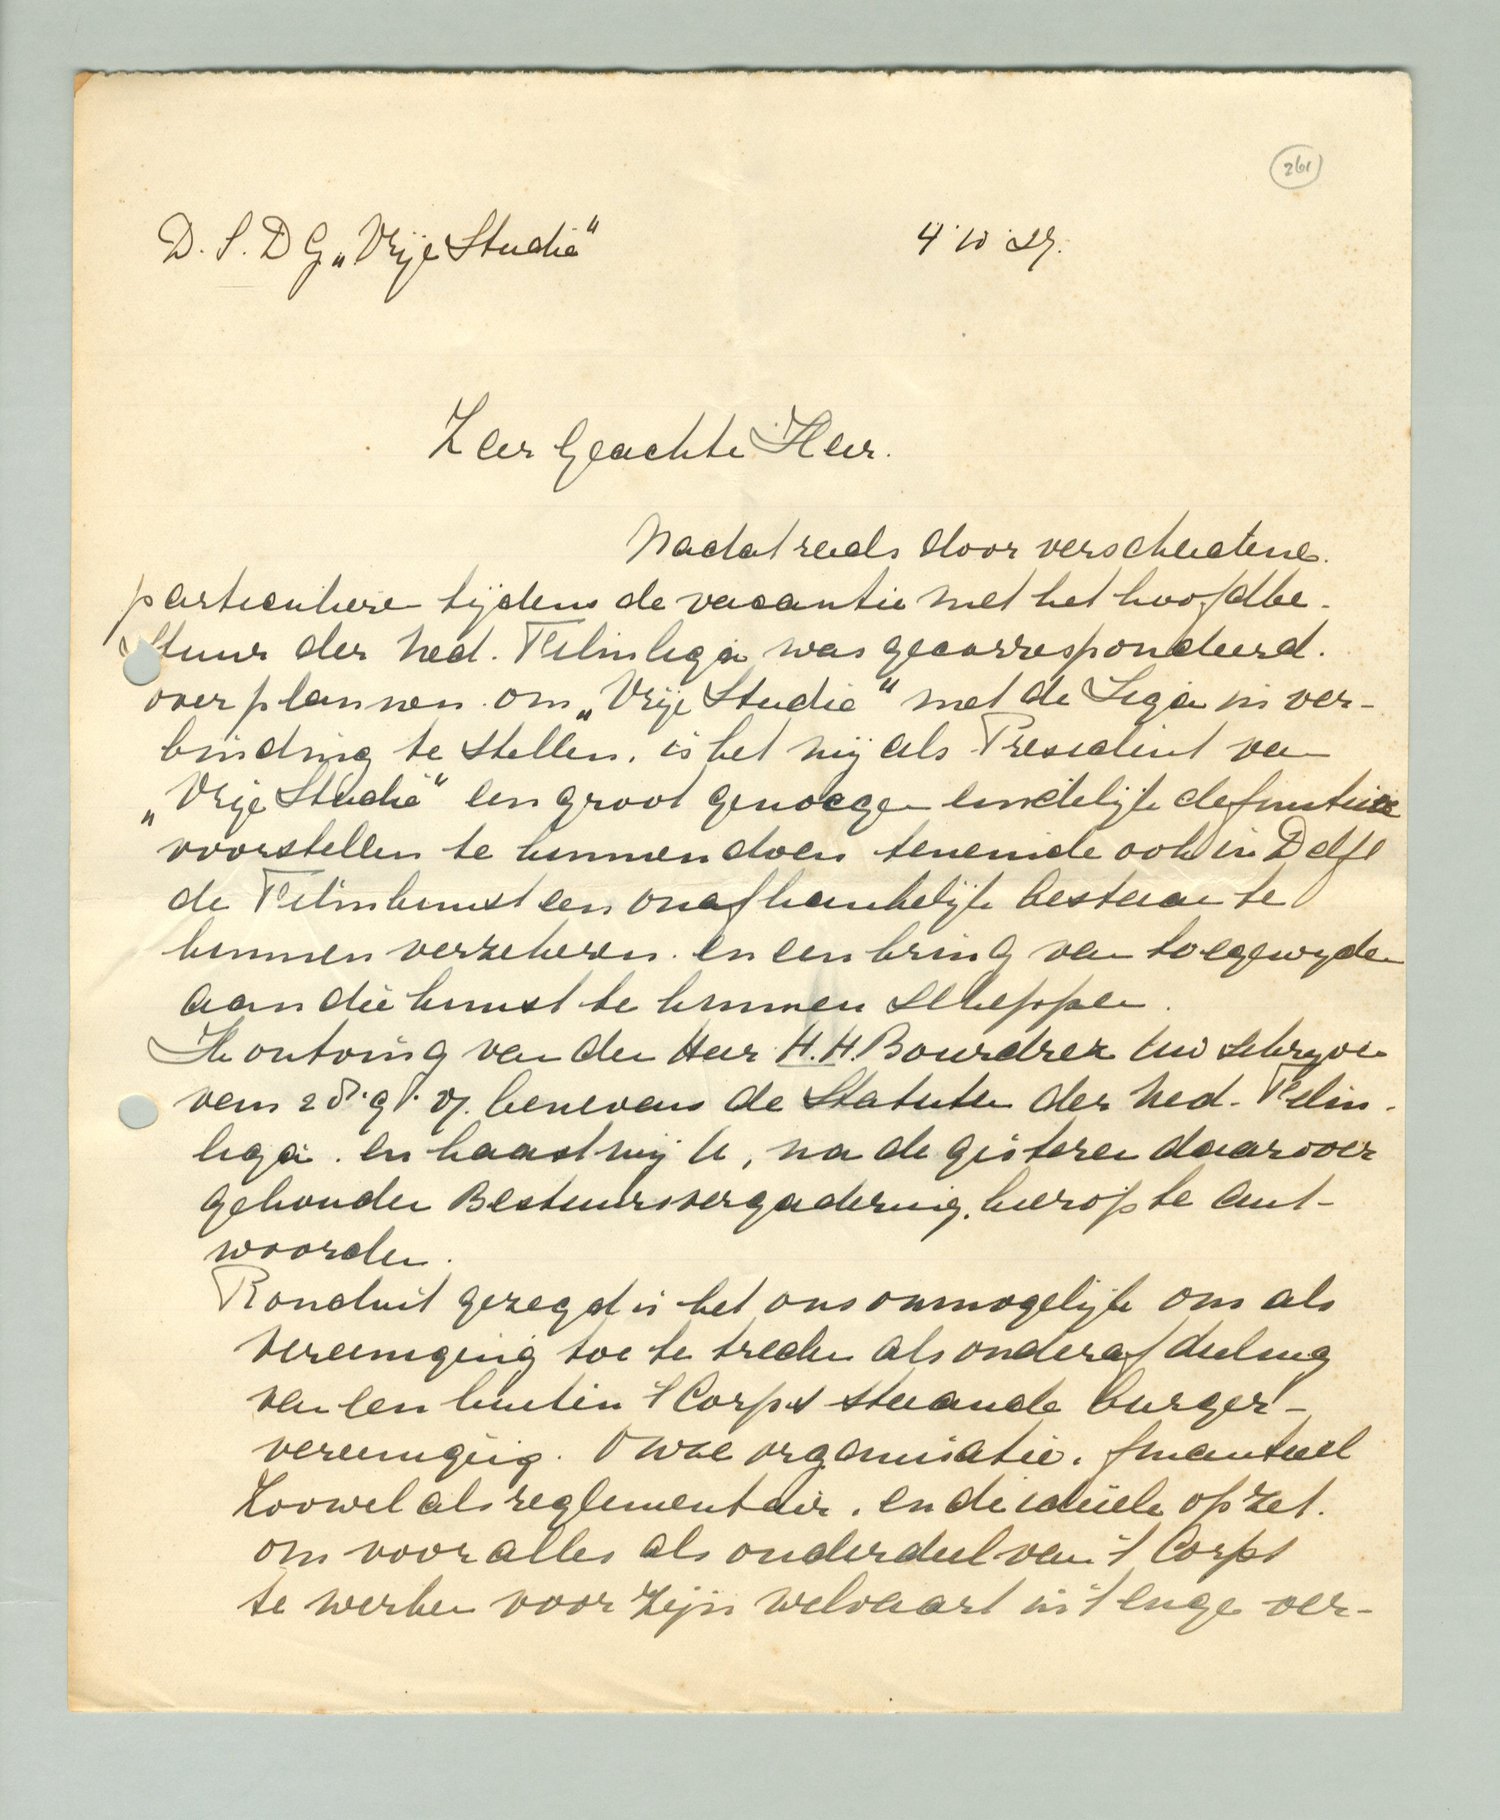 261
D. S. D G „Vrije Studie" 4 10 27.
Zeer Geachte Heer.
Nadat reeds door verscheidene
particuliere tijdens de vacantie met het hoofdbe-
stuur der Ned. Filmliga was gecorrespondeerd.
over plannen om „Vrije Studie" met de Liga in ver-
binding te stellen, is het mij als President van
„Vrije Studie" een groot genoegen eindelijk definitieve
voorstellen te kunnen doen teneinde ook in Delft
de Filmkunst een onafhankelijk bestaan te
kunnen verzekeren en een kring van toegewyden
aan die kunst te kunnen scheppen.
Ik ontving van den Heer H.H. Bourdrez uw schryven
van 28. 9. 27. benevens de Statuten der Ned. Film-
liga. en haast mij U, na de gisteren daarover
gehouden Bestuursvergadering, hierop te ant-
woorden.
Ronduit gezegd is het ons onmogelijk om als
vereeniging toe te treden als onderafdeeling
van een buiten 't Corps staande burger-
vereeniging. Onze organisatie, financieel
zoowel als reglementair, en de ideële opzet.
om voor alles als onderdeel van 't Corps
te werken voor zijn welvaart in 't enge ver-